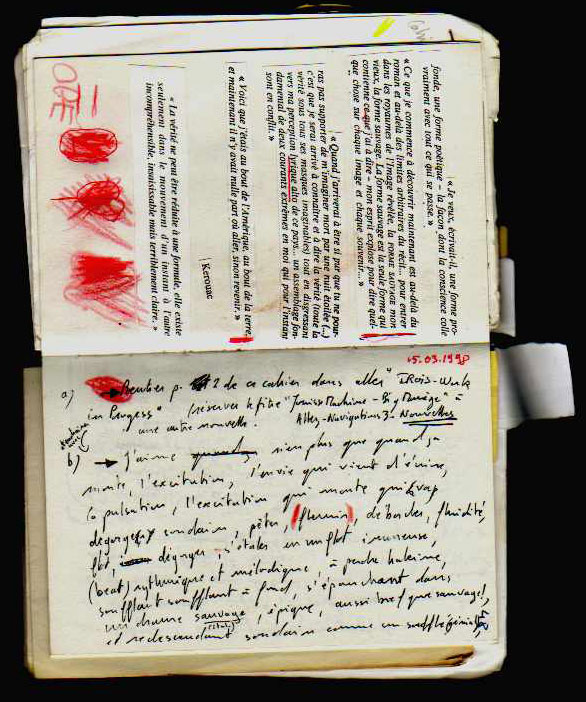 « Je veux, écrivait-il, une forme pro-
fonde, une forme poétique – la façon dont la conscience colle
vraiment avec tout ce qui se passe. »
« Ce que je commence à découvrir maintenant est au-delà du
roman et au-delà des limites arbitraires du récit... pour entrer
dans les royaumes de l'Image révélée, la FORME SAUVAGE mon
vieux, la forme sauvage. La forme sauvage est la seule forme qui
contienne ce que j'ai à dire – mon esprit explose pour dire quel-
que chose sur chaque image et chaque souvenir... »
« Quand j'arriverai à être si pur que tu ne pour-
ras pas supporter de m'imaginer mort par une nuit étoilée (...)
c'est que je serai arrivé à connaître et à dire la vérité (toute la
vérité sous tous ses masques imaginables) tout en digressant
vers ma perception lyrique alto de ce pays... un assemblage fon-
damental de deux courants extrêmes en moi qui pour l'instant
sont en conflit. »
« Voici que j'étais au bout de l'Amérique, au bout de la terre,
et maintenant il n'y avait nulle part où aller, sinon revenir. »
Kerouac
« La vérité ne peut être réduite à une formule, elle existe
seulement dans le mouvement d'un instant à l'autre
incompréhensible, insaisissable mais terriblement claire. »
ODE
15.03.1998
a) p. 2 de ce cahier dans "TROIS-Work
in Progress" (réserver le titre
Nouvelles
une autre nouvelle.
b) J'aime rien plus que quand ça
monte, l'excitation, l'envie qui vient d'écrire,
la pulsation, l'excitation qui monte
soudain, péter, déborder, fluidité,
flot, dégorger, s'étaler en un flot immense,
(beat) rythmique et mélodique, à perdre haleine,
soufflant soufflant à fond, s'époumonant dans
un chorus sauvage, épique, aussi bref que sauvage,
et redescendant soudain comme un soufflé